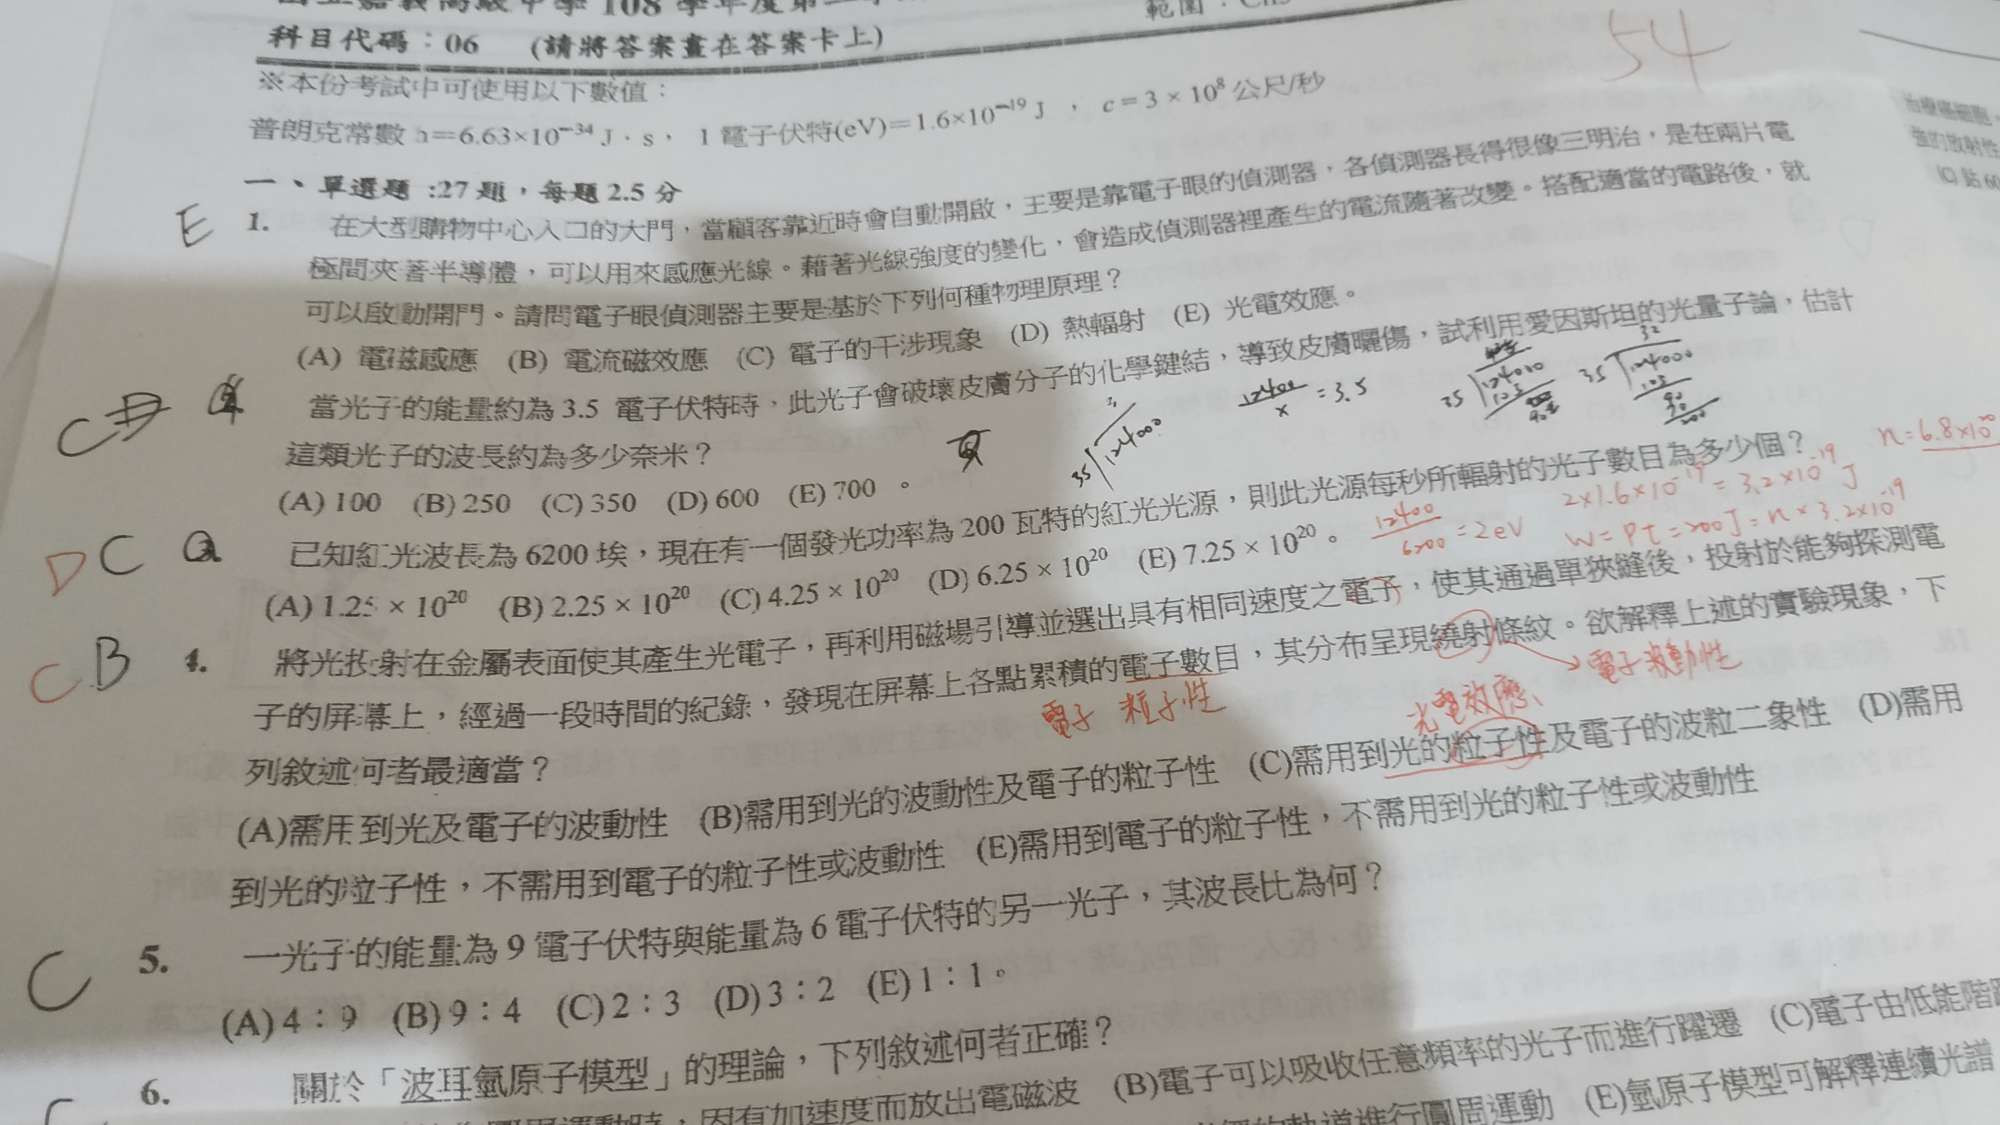 108 學年度第
範圍：
科目代碼：06 (請將答案畫在答案卡上)
54
※本份考試中可使用以下數值：
普朗克常數 h=6.63×10⁻³⁴ J．s， 1 電子伏特(eV)=1.6×10⁻¹⁹ J ， c = 3 × 10⁸ 公尺/秒
一、單選題 :27 題，每題 2.5 分
E 1. 在大型購物中心入口的大門，當顧客靠近時會自動開啟，主要是靠電子眼的偵測器，各偵測器長得很像三明治，是在兩片電
極間夾著半導體，可以用來感應光線。藉著光線強度的變化，會造成偵測器裡產生的電流隨著改變。搭配適當的電路後，就
可以啟動開門。請問電子眼偵測器主要是基於下列何種物理原理？
(A) 電磁感應 (B) 電流磁效應 (C) 電子的干涉現象 (D) 熱輻射 (E) 光電效應。
C 當光子的能量約為 3.5 電子伏特時，此光子會破壞皮膚分子的化學鍵結，導致皮膚曬傷，試利用愛因斯坦的光量子論，估計
這類光子的波長約為多少奈米？
12400/x = 3.5
35 124000
(A) 100 (B) 250 (C) 350 (D) 600 (E) 700 。
D C 已知紅光波長為 6200 埃，現在有一個發光功率為 200 瓦特的紅光光源，則此光源每秒所輻射的光子數目為多少個？
(A) 1.25 × 10²⁰ (B) 2.25 × 10²⁰ (C) 4.25 × 10²⁰ (D) 6.25 × 10²⁰ (E) 7.25 × 10²⁰ 。
12400/6200 = 2eV
2×1.6×10⁻¹⁹ = 3.2×10⁻¹⁹ J
W = Pt = 200J = n × 3.2×10⁻¹⁹
n = 6.8×10²⁰
C B 4. 將光投射在金屬表面使其產生光電子，再利用磁場引導並選出具有相同速度之電子，使其通過單狹縫後，投射於能夠探測電
子的屏幕上，經過一段時間的紀錄，發現在屏幕上各點累積的電子數目，其分布呈現繞射條紋。欲解釋上述的實驗現象，下
電子 粒子性
光電效應
電子波動性
列敘述何者最適當？
(A)需用到光及電子的波動性 (B)需用到光的波動性及電子的粒子性 (C)需用到光的粒子性及電子的波粒二象性 (D)需用
到光的粒子性，不需用到電子的粒子性或波動性 (E)需用到電子的粒子性，不需用到光的粒子性或波動性
C 5. 一光子的能量為 9 電子伏特與能量為 6 電子伏特的另一光子，其波長比為何？
(A) 4：9 (B) 9：4 (C) 2：3 (D) 3：2 (E) 1：1。
6. 關於「波耳氫原子模型」的理論，下列敘述何者正確？
運動時，因有加速度而放出電磁波 (B)電子可以吸收任意頻率的光子而進行躍遷 (C)電子由低能階
的軌道進行圓周運動 (E)氫原子模型可解釋連續光譜